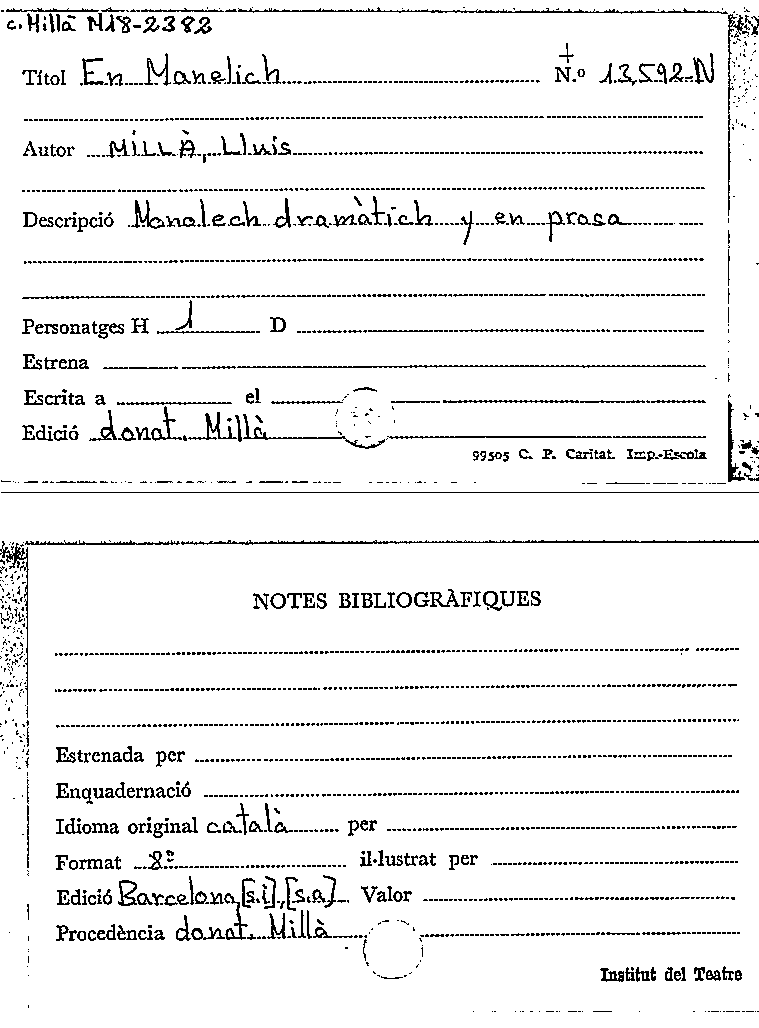 c. Millà N18-2382
Títol En Manelich N.º 13,592-N
Autor MILLÀ, Lluis
Descripció Monolech dramàtich y en prosa
Personatges H 1 D
Estrena
Escrita a el
Edició donat. Millà
99505 C. P. Caritat. Imp.-Escola
NOTES BIBLIOGRÀFIQUES
Estrenada per
Enquadernació
Idioma original català per
Format 8º il·lustrat per
Edició Barcelona, [s.i], [s.a] Valor
Procedència donat. Millà
Institut del Teatre